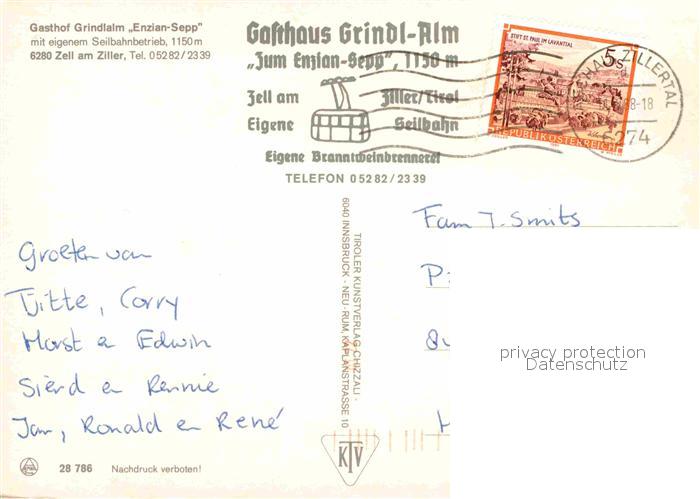 Gasthof Grindlalm „Enzian-Sepp"
mit eigenem Seilbahnbetrieb, 1150 m
6280 Zell am Ziller, Tel. 0 52 82 / 23 39
Gasthaus Grindl-Alm
„Zum Enzian-Sepp", 1150 m
Zell am Ziller/Tirol
Eigene Seilbahn
Eigene Branntweinbrennerei
TELEFON 0 52 82 / 23 39
STIFT ST. PAUL IM LAVANTTAL
5 S
REPUBLIK ÖSTERREICH
ZILLERTAL
88-18
6274
Groeten van
Tjitte, Corry
Horst en Edwin
Siërd en Rennie
Jan, Ronald en René
TIROLER KUNSTVERLAG CHIZZALI ·
6040 INNSBRUCK - NEU-RUM, KAPLANSTRASSE 10
Fam J. Smits
P
H
privacy protection
Datenschutz
KTV
28 786 Nachdruck verboten!